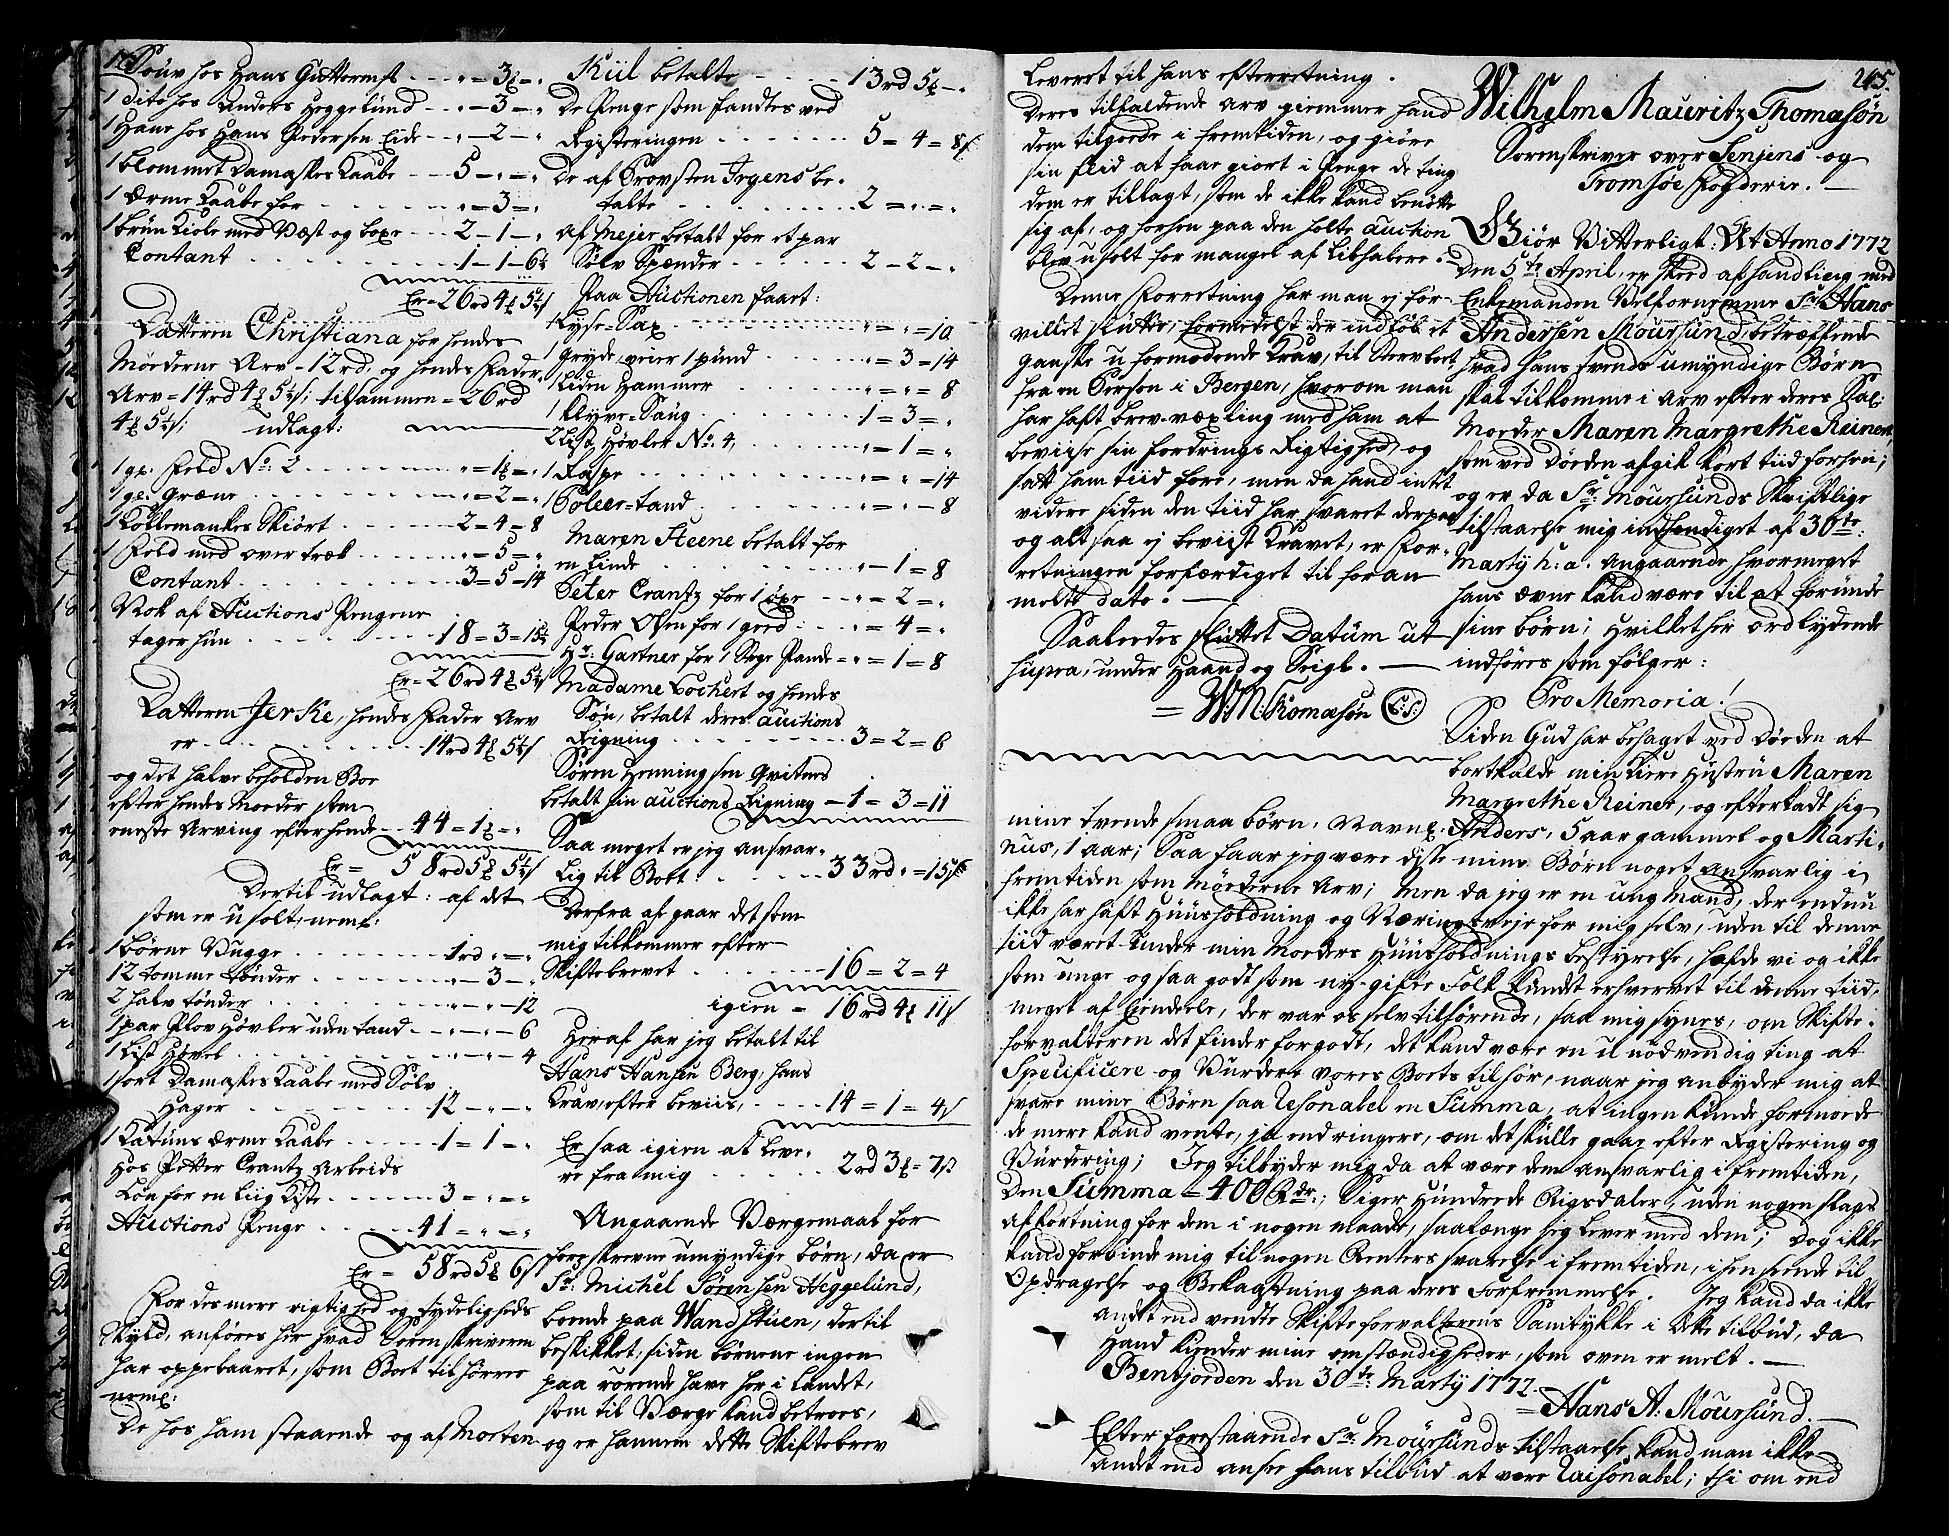 1 Souv hos Hans Guttormss - - - „ = 3 ₰ - „
1 dito hos Anders Heggelund - - „ - 3 - „
1 Hane hos Hans Pedersen Eide - - „ - 2 - „
1 blommet Damaskes Kaabe - - - 5 - „ - „
1 Ærme Kaabe for - - - - „ = 3 = „
1 brun Kiole med Vest og boxe - - - 2 - 1 - „
Contant - - - - - - 1 - 1 - 6½
Er = 26rd 4 ₰ 5½ s
Datteren Christiana for hendes
Moederne Arv = 12rd, og hendes Fader
Arv = 14rd 4 ₰ 5½ s; tilsammen = 26rd
4 ₰ 5½ s: udlagt:
1 gl: Feld No: 2 - - - - - „ = 1½ = „
1 gl: Græne - - - - - „ = 2 = „
1 Kallemankes Skiört - - - - 2 = 4 = 8
1 Feld med over træk - - - - „ = 5 = „
Contant - - - - - - 3 = 5 = 14
Nok af Auctions Pengene
tager hun - - - - - 18 = 3 = 15½
Er = 26rd 4 ₰ 5½ s
Datteren Jerke, hendes Fader Arv
er - - - - - - 14rd 4 ₰ 5½ s
og det halve beholden Boe
efter hendes Moeder som
eneste Arving efter hende - - 44 = 1 ₰ = „
Er = 58rd 5 ₰ 5½ s
Dertil udlagt: af det
som er usolt, neml:
1 börne Vugge - - - - - 1rd „ = „
12 tomme tönder - - - - „ - 3 - „
2 halv tönder - - - - - „ - „ - 12
1 par Plov Hövler uden tand - - „ - „ - 6
1 List Hövel - - - - - - „ - „ - 4
1 sort Damaskes Kaabe med Sölv
Hager - - - - - - 12 - „ - „
1 Katuns Ærme Kaabe - - - - 1 = 1 = „
Hos Petter Crantz Arbeids
Lön for en Liig Kiste - - - - 3 = „ = „
Auctions Penge - - - - 41 = „ = „
Er = 58rd 5 ₰ 6 s
For des mere rigtighed og tydeligheds
Skyld, anföres her hvad Sorenskriveren
har oppebaaret, som Boet tilhörer
neml:
De hos ham staaende og af Morten
Kiil betalte - - - - 13rd 5 ₰ - „
De Penge som fandtes ved
Registeringen - - - - - 5 = 4 = 8 s
De af Provsten Irgens be-
talte - - - - - - 2 = „ = „
Af Mejer betalt for et par
Sölv Spænder - - - - - 2 - 2 - „
Paa Auctionen faaet:
1 Lyse-Sax - - - - - „ = „ = 10
1 gryde, veier 1 pund - - - - „ = 3 = 14
1 Liden Hammer - - - - - „ = „ = 8
1 Klyve-Saug - - - - - 1 = 3 = „
2 List Hövler No: 4, - - - - „ = 1 = „
1 Raspe - - - - - - „ = „ = 14
1 Poleer-tand - - - - - „ = „ - 8
Maren Steene betalt for
en Linde - - - - - - „ - 1 = 8
Peter Crantz for 1 öxe - - - „ = 2 = „
Peder Olsen for 1 geed - - - „ = 4 = „
Hr: Gartner for 1 Stege Pande - „ = 1 = 8
Madame Lochert og hendes
Sön, betalt deres auctions
Rigning - - - - - - 3 = 2 = 6
Sören Henningsen Qvitnes
betalt sin auctions Rigning - 1 = 3 = 11
Saa meget er jeg ansvar-
lig til Boet - - - - 33rd „ = 15 s
Derfra af gaar det som
mig tilkommer efter
Skiftebrevet - - - - 16 = 2 = 4
igien = 16rd 4 ₰ 11 s
Heraf har jeg betalt til
Hans Hansen Berg, hans
Krav, efter beviis, - - - 14 = 1 = 4 s
Er saa igien at leve-
re fra mig - - - - 2rd 3 ₰ = 7 s
Angaaende Værgemaal for
foreskrevne umyndige börn, da er
Sr: Michel Sörensen Heggelund,
boende paa Wandstuen, dertil
beskikket, siden börnene ingen
paa rörende have her i Landet,
som til Værge kand betroes,
og er hannem dette Skiftebrev
leveret til hans efterretning.
Deres tilfaldende Arv giemmer hand
dem tilgoede i fremtiden, og giöre
sin flid at faar giort i Penge de ting
dem er tillagt, som de ikke kand benötte
sig af, og forhen paa den holte auction
blev usolt for mangel af Libhabere. -
Denne Forretning har man ej for-
villet slutte, formedelst der indföb et
ganske u formodende Krav, til Stervboet
fra en Person i Bergen, hvorom man
har haft brev-vexling med ham at
beviise sin fordrings Rigtighed, og
satt ham tiid fore, men da hand intet
videre siden den tiid har svaret derpaa
og altsaa ej beviist Kravet, er For-
retningen forfærdiget til foran
meldte dato. -
Saaledes sluttet Datum ut
supra, under Haand og Seigl. -
= W: M: Thomasön (L:S:)
265.
Wilhelm Mauritz Thomasön
Sorenskriver over Senjens og
Tromsöe Fogderie. -
Giör Vitterligt: At Anno 1772
den 5te April, er skeed afhandling med
Enkemanden Velfornemme Sr: Hans
Andersen Moursund, betreffende
hvad hans tvende umyndige Börn
skal tilkomme i Arv efter deres Sal:
Moeder Maren Margrethe Reinert,
som ved Döden afgik kort tiid forhen;
og er da Sr: Moursunds Skriftlige
tilstaaelse mig indhændiget af 30te
Martij h: a: Angaaende hvormeget
hans ævne kand være til at forunde
sine börn; hvilket her ordlydende
indföres som fölger:
Pro Memoria!
Siden Gud har behaget ved Döden at
bortkalde min kiere Hustru Maren
Margrethe Reinert, og efterladt sig
mine tvende smaa börn, Navnl. Anders, 5 aar gammel og Marti-
nus, 1 aar; Saa faar jeg være disse mine Börn noget Ansvarlig i
fremtiden som Möederne Arv; Men da jeg er en ung Mand, der endnu
ikke har haft Huusholdning og Næringsveje for mig selv, uden til denne
tiid været under min Moeders Huusholdnings bestyrelse, hafde vi og ikke
som unge og saa godt som ny-gifte Folk kundet erhvervet til denne tiid,
meget af Eiendeele, der var os selv tilhörende, saa mig synes, om Skifte-
forvalteren det finder forgodt, det kand være en u nödvendig ting at
Specificere og Vurdere vores Boets tilhör, naar jeg anbyder mig at
svare mine Börn saa resonabel en Summa, at ingen kunde formoede
de mere kand vente, ja end ringere, om det skulle gaae efter Registering og
Vurdering; Jeg tilbyder mig da at være dem ansvarlig i fremtiden,
den Summa = 400 Rdr., Siger Hundrede Rigsdaler, uden nogen slags
afkortning for dem i nogen maade, saalænge jeg lever med dem; Dog ikke
kand forbinde mig til nogen Renters svarelse i fremtiden, i henseende til
Opdragelse og Bekaastning paa deres Forfremmelse. Jeg kand da ikke
andet end vendte Skifteforvalterens Samtykke i dette tilbud, da
Hand kiender mine omstændigheder, som oven er melt. -
Bentjorden den 30te Martij 1772.
= Hans A: Moursund. -
Efter forestaaende Sr: Moursunds tilstaaelse, kand man ikke
andet end ansee hans tilbud at være raisonabel; thi om end